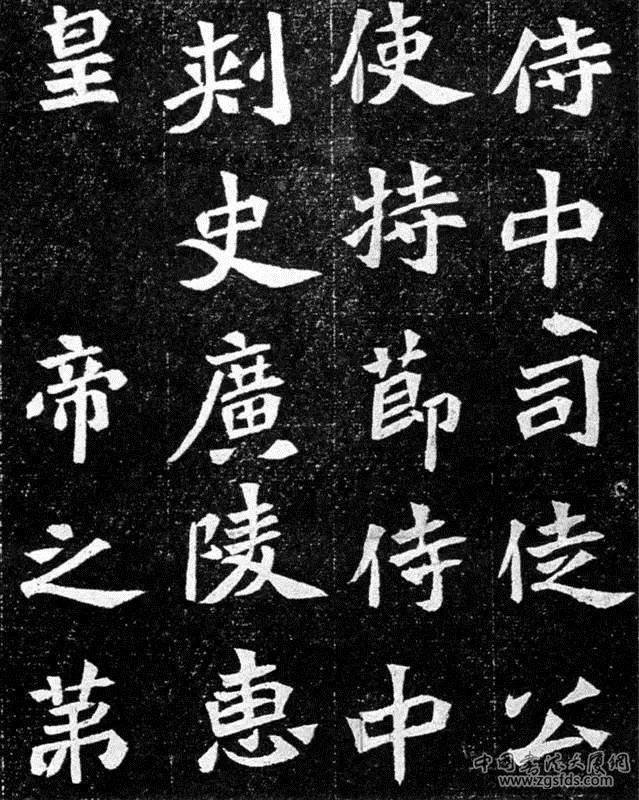 侍中司徒公
使持節侍中
刺史廣陵惠
皇帝之第
中国书法大展网
www.zgsfds.com